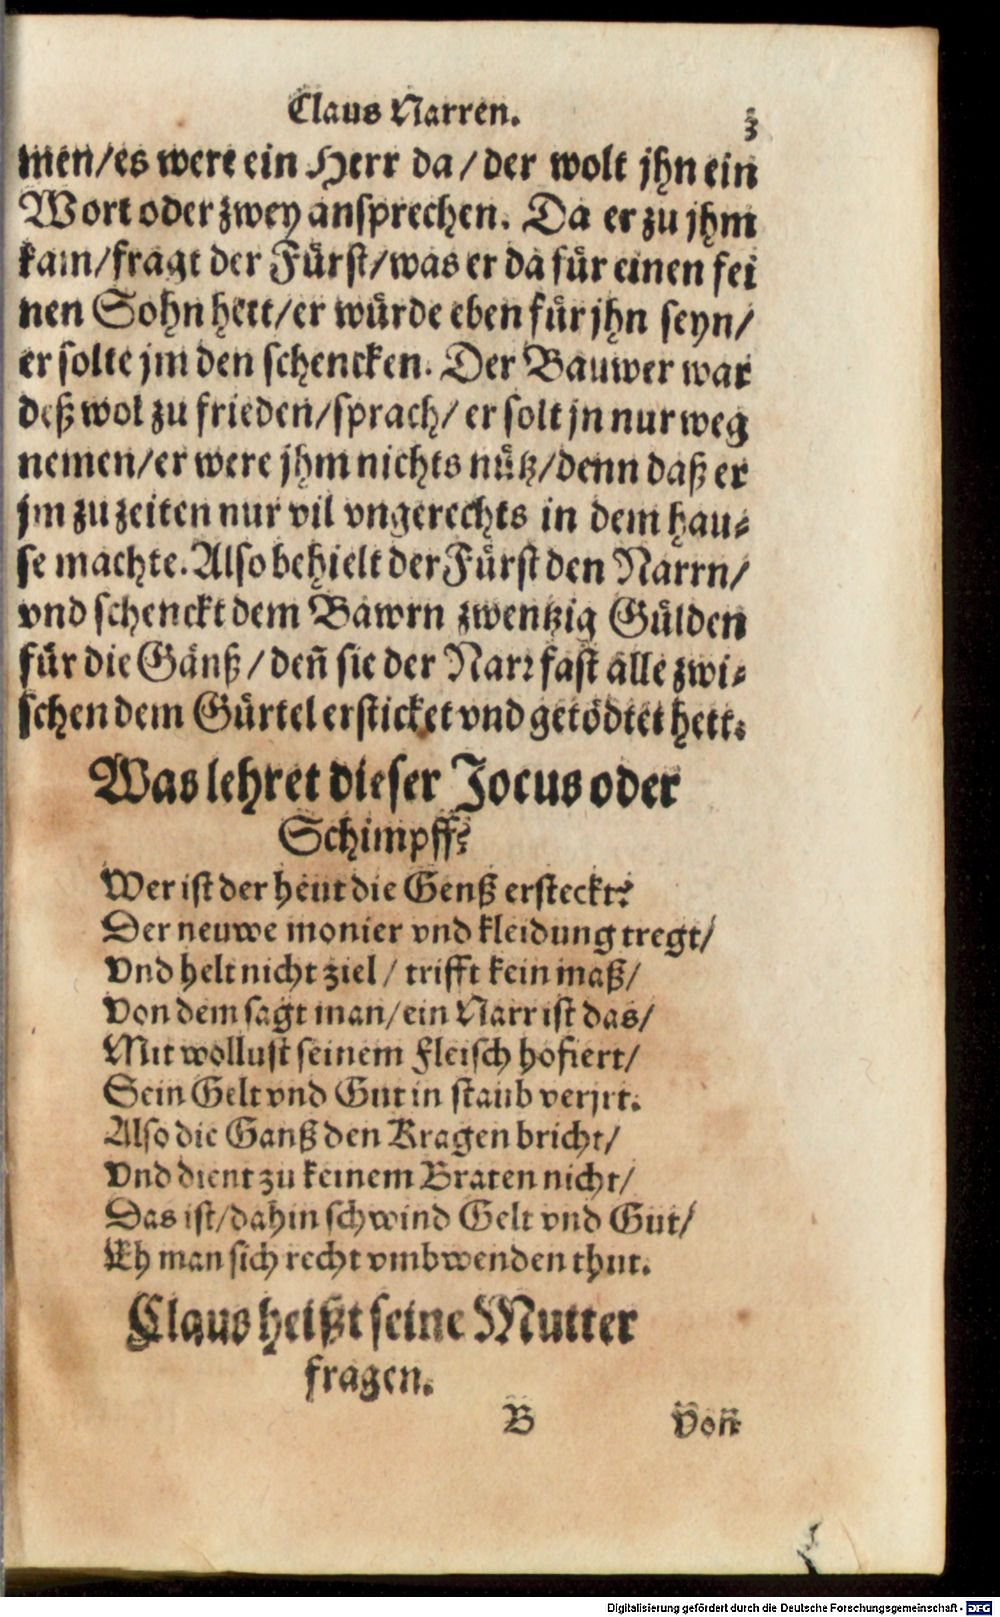 Claus Narren.
3
men/es were ein Herr da/der wolt jhn ein
Wort oder zwey ansprechen. Da er zu jhm
kam/fragt der Fürst/was er da für einen fei
nen Sohn hett/er würde eben für jhn seyn/
er solte jm den schencken. Der Bauwer war
deß wol zu frieden/sprach/er solt jn nur weg
nemen/er were jhm nichts nütz/denn daß er
jm zu zeiten nur vil vngerechts in dem hau-
se machte. Also behielt der Fürst den Narrn/
vnd schenckt dem Bawrn zwentzig Gülden
für die Gänß/deñ sie der Narr fast alle zwi-
schen dem Gürtel ersticket vnd getödtet hett.
Was lehret dieser Jocus oder
Schimpff?
Wer ist der heut die Genß ersteckt?
Der neuwe monier vnd kleidung tregt/
Vnd helt nicht ziel/trifft kein maß/
Von dem sagt man/ein Narr ist das/
Mit wollust seinem Fleisch hofiert/
Sein Gelt vnd Gut in staub verjrt.
Also die Ganß den Kragen bricht/
Vnd dient zu keinem Braten nicht/
Das ist/dahin schwind Gelt vnd Gut/
Eh man sich recht vmbwenden thut.
Claus heißt seine Mutter
fragen.
B
Von
Digitalisierung gefördert durch die Deutsche Forschungsgemeinschaft - DFG